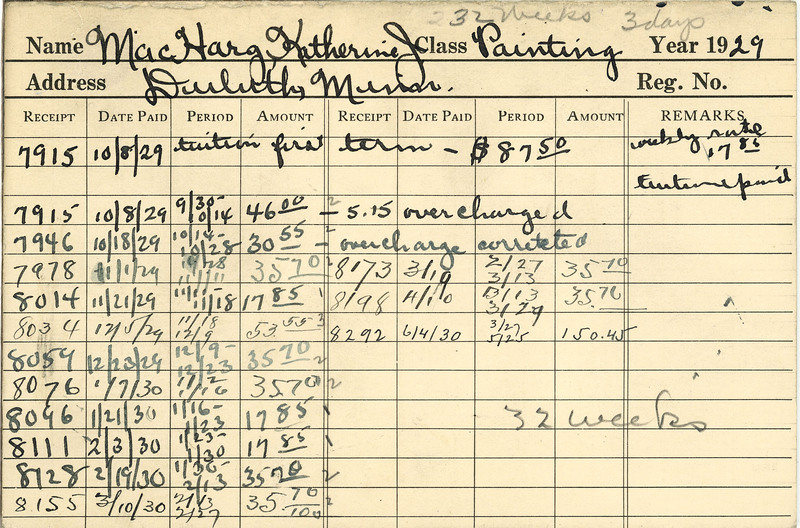 32 Weeks 3 days
Name MacHarg, Katherine J. Class Painting Year 1929
Address Duluth, Minn. Reg. No.
RECEIPT DATE PAID PERIOD AMOUNT RECEIPT DATE PAID PERIOD AMOUNT REMARKS
7915 10/8/29 tuition first term - $87 50 weekly rate 17 85
tuition paid
7915 10/8/29 9/30- 10/14 46 00 2 - 5.15 overcharged
7946 10/18/29 10/14- 10/28 30 55 - overcharge corrected
7978 11/1/29 10/28 11/11 35 70 2 8173 3/19 2/27 3/13 35 70
8014 11/21/29 11/11-11/18 17 85 1 8198 4/10 3/13 3/27 35.70
8034 12/5/29 11/18 12/9 53.55 3 8292 6/4/30 3/27 5/25 150.45
8059 12/23/29 12/9- 12/23 35 70 2
8076 1/7/30 1/2 1/16 35.70 2
8096 1/21/30 1/16- 1/23 17 85 1 32 weeks
8111 2/3/30 1/23- 1/30 17 85 1
8128 2/19/30 1/30- 2/13 35 70 2
8155 3/10/30 2/13 2/27 35. 70/100 2